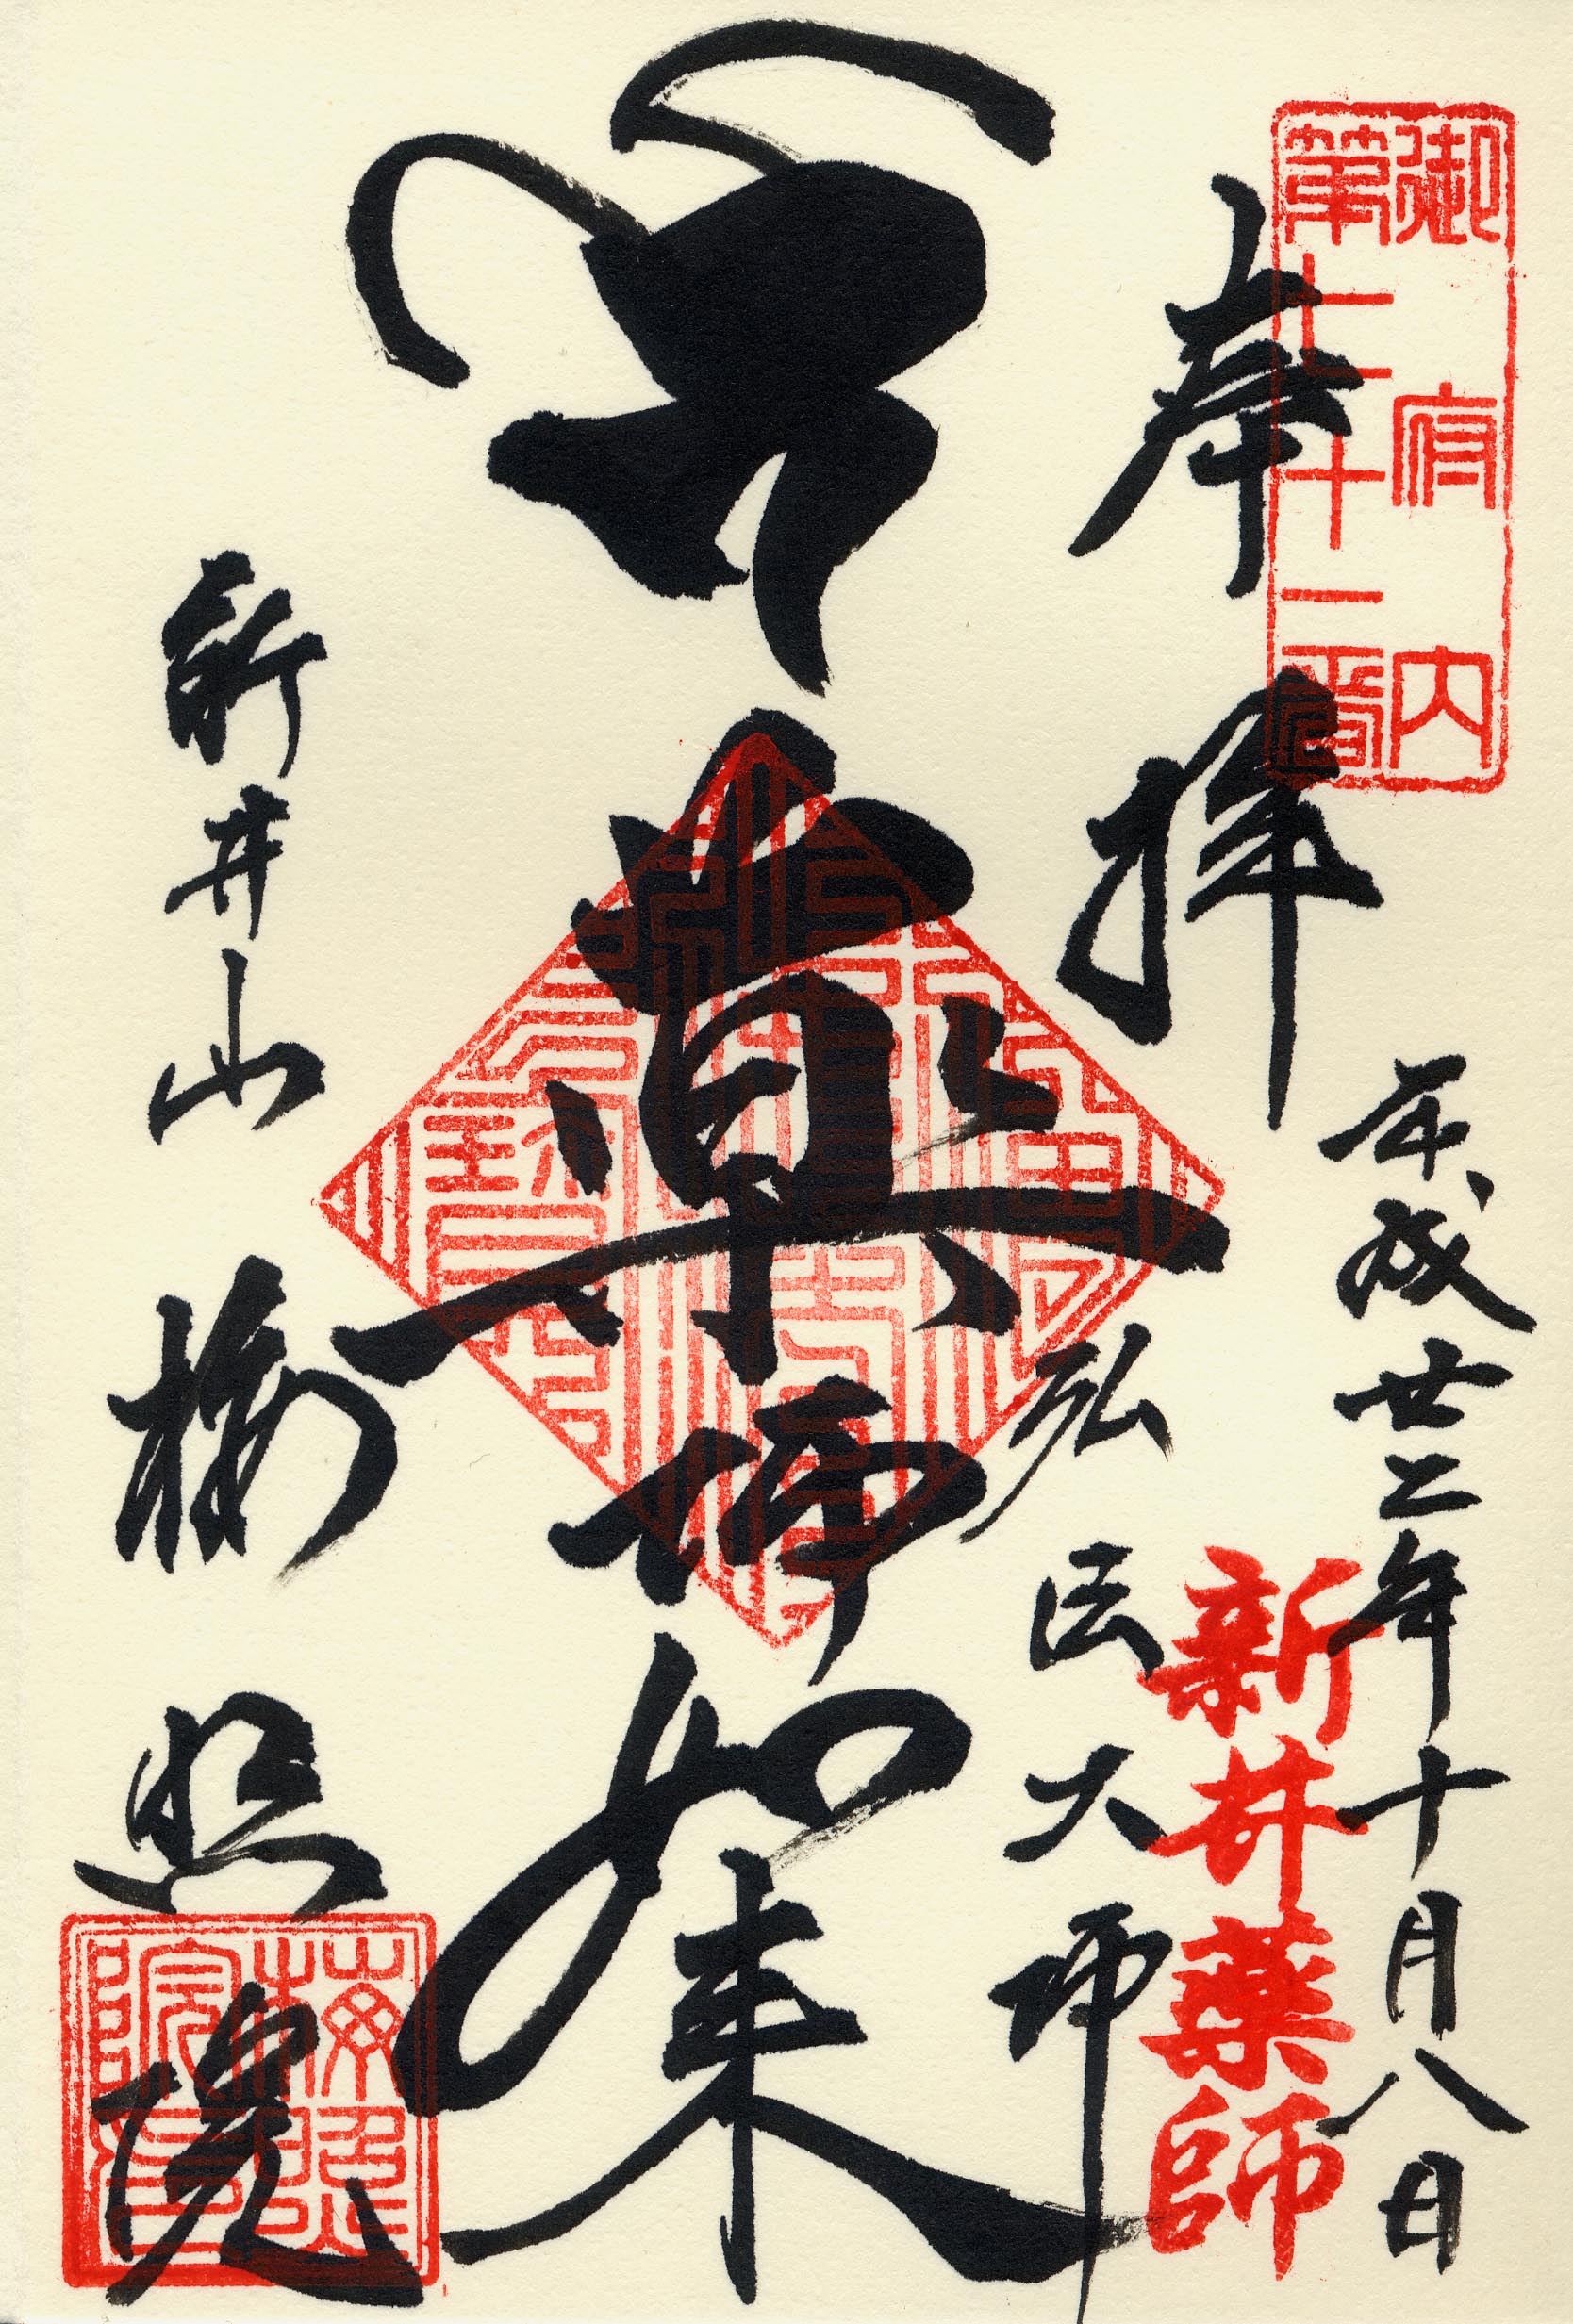 御府内
第七十一番
奉拝
平成廿二年十月八日
新井薬師
弘法大師
薬師如来
新井山
梅照院
梅照院印